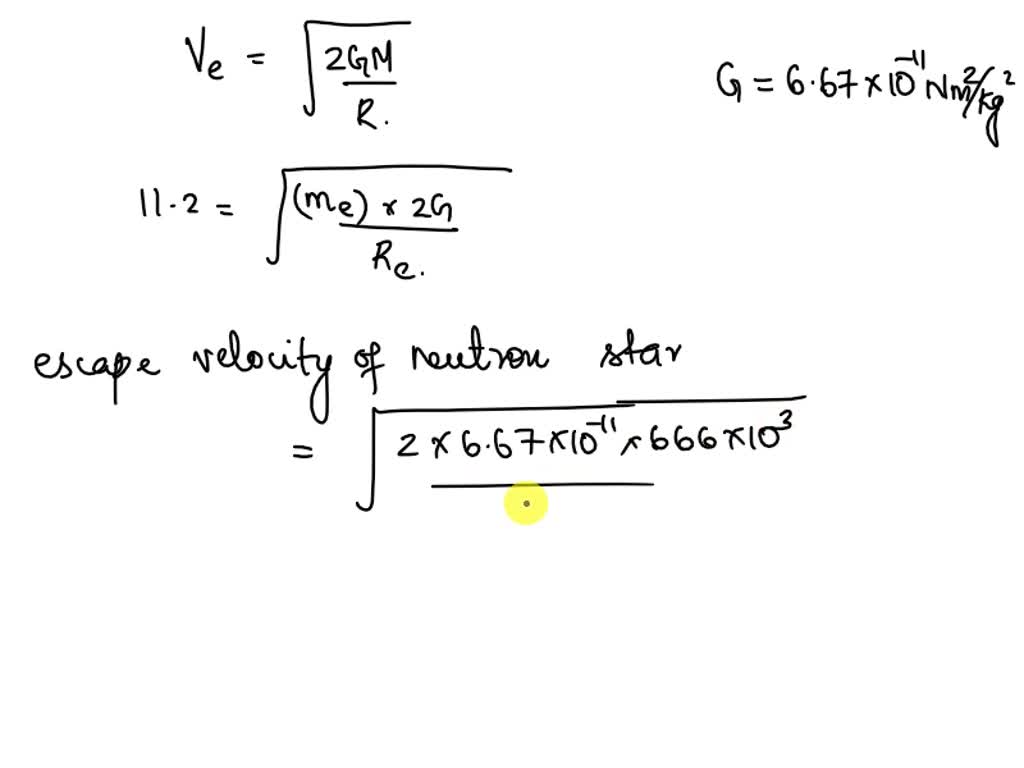 Ve = √(2GM/R.)
G = 6.67×10⁻¹¹ Nm²/kg²
11.2 = √((me) × 2G/Re.)
escape velocity of neutron star
= √(2 × 6.67×10⁻¹¹ × 666×10³